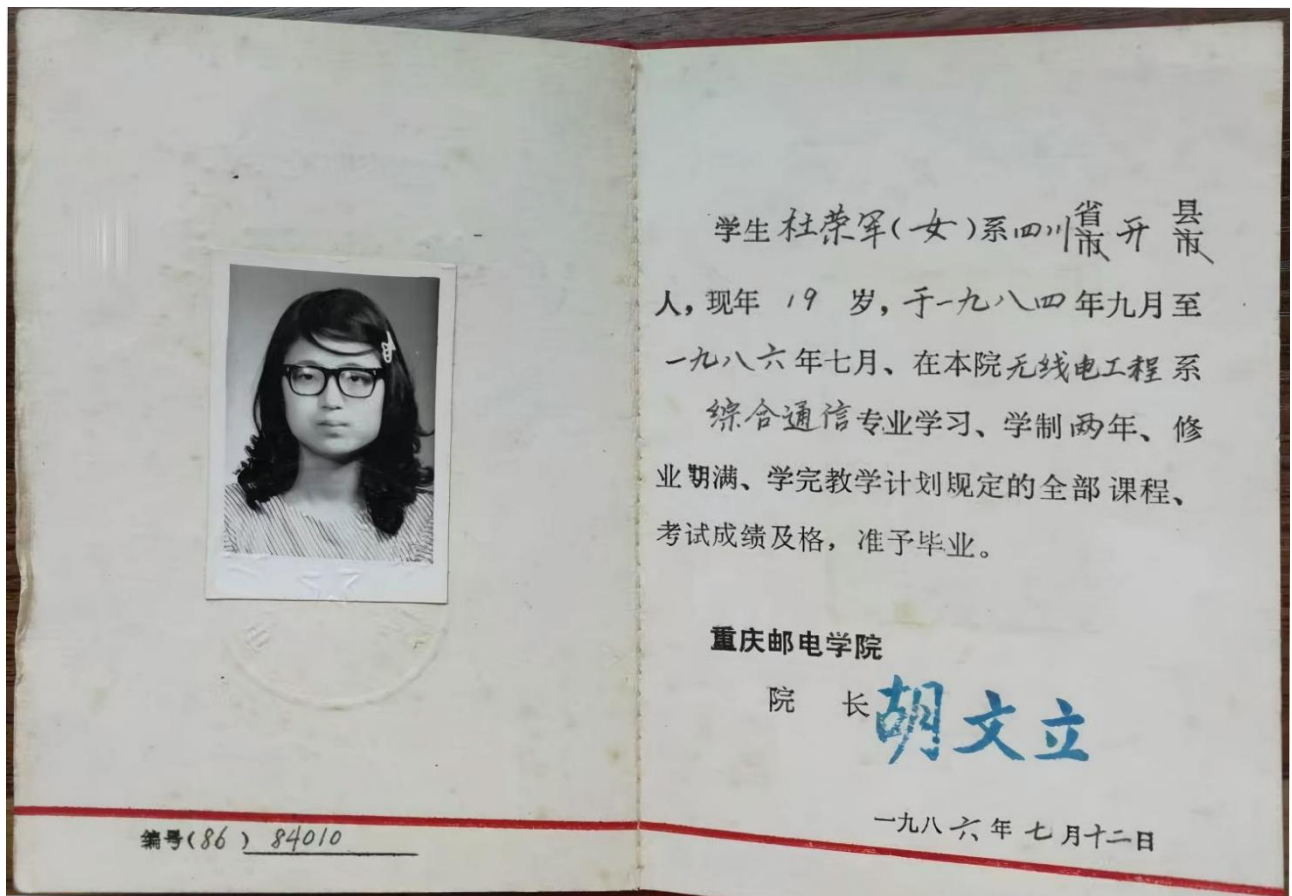 编号(86) 84010
学生杜荣军(女)系四川省市开县市
人,现年 19 岁,于一九八四年九月至
一九八六年七月、在本院无线电工程系
综合通信专业学习、学制两年、修
业期满、学完教学计划规定的全部课程、
考试成绩及格,准予毕业。
重庆邮电学院
院 长 胡文立
一九八六年七月十二日